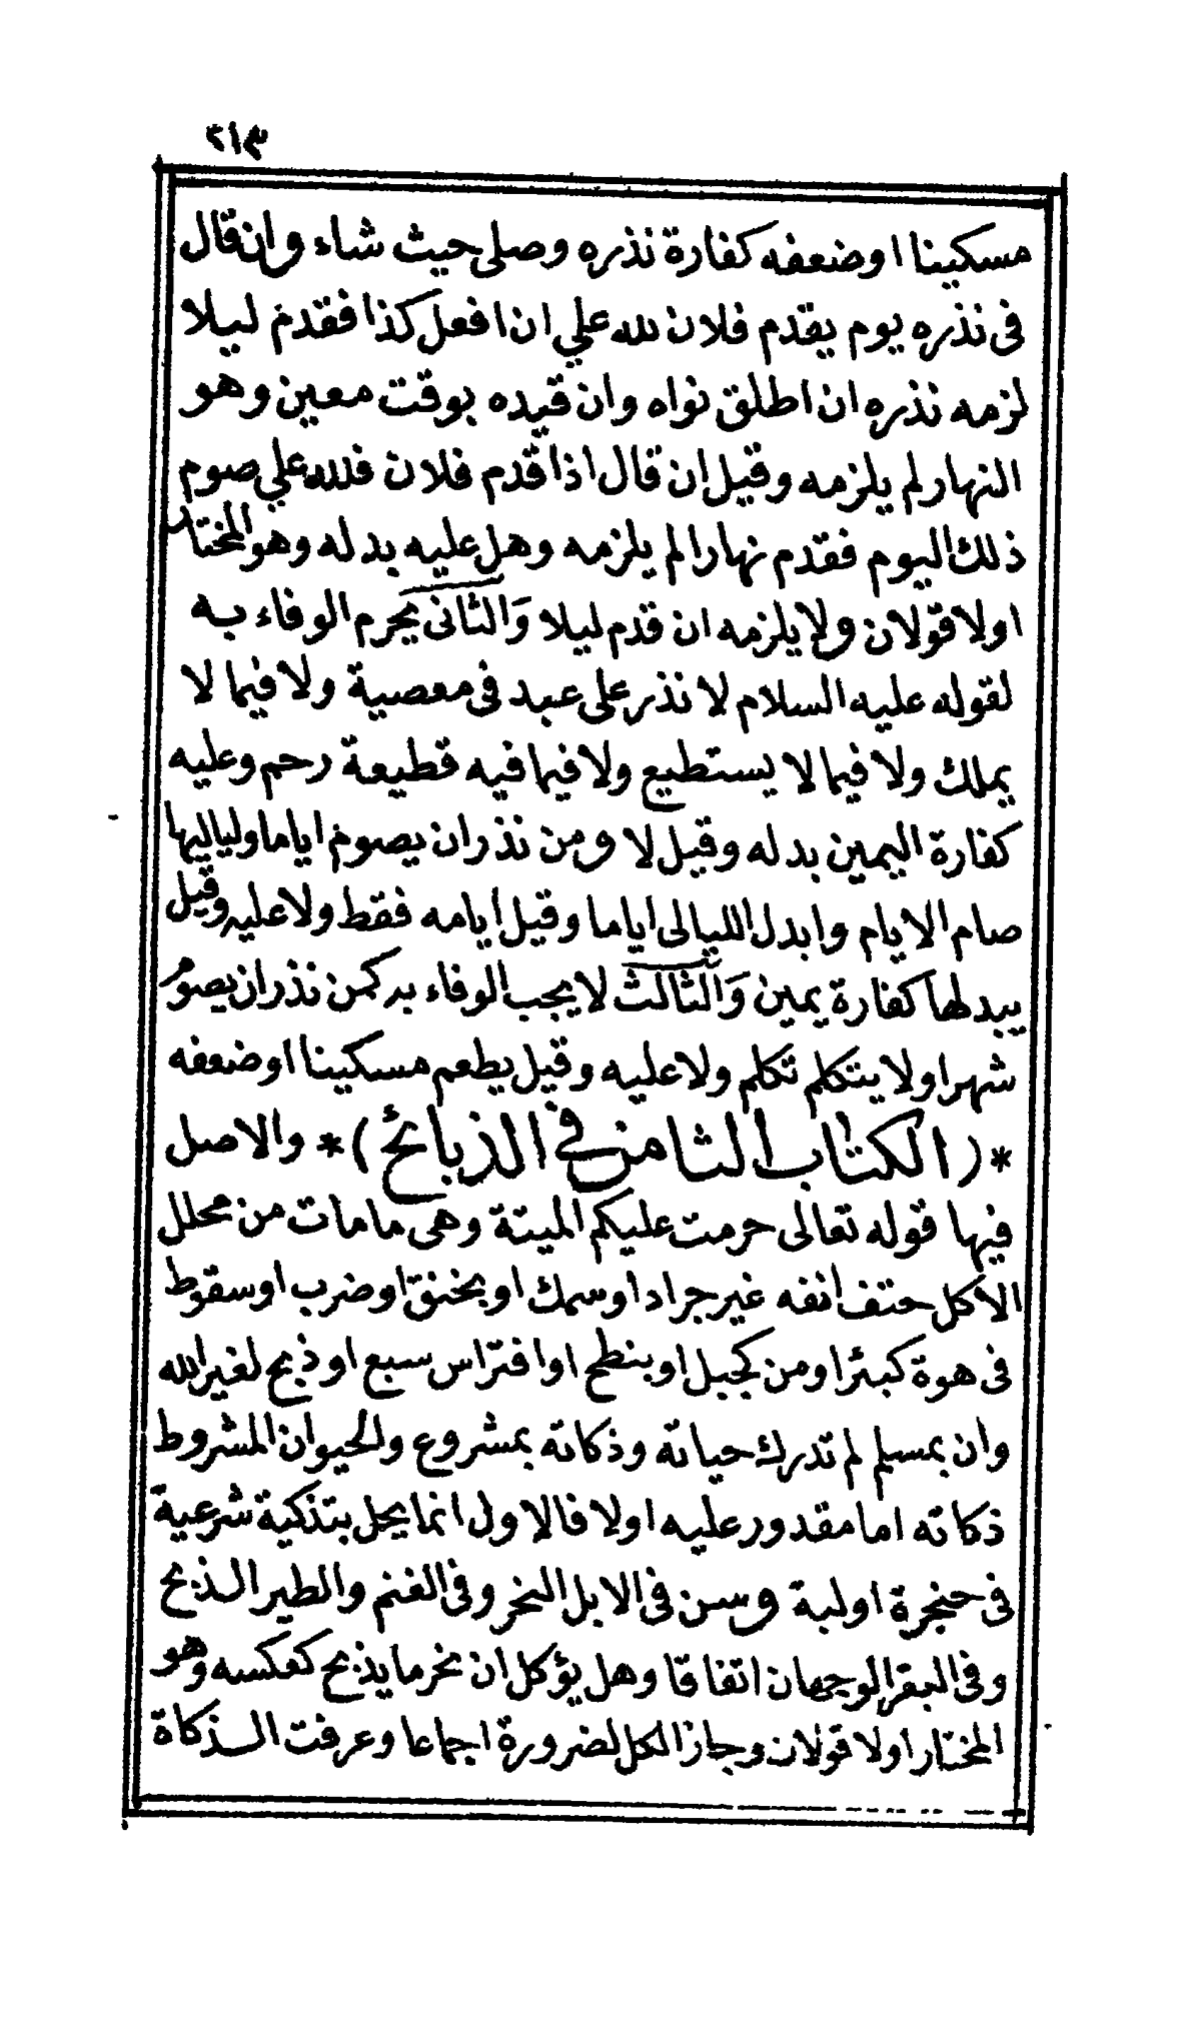 ٢١٣
مسكينا اوضعفه كفارة نذره وصلى حيث شاء وان قال
فى نذره يوم يقدم فلان لله علي ان افعل كذا فقدم ليلا
لزمه نذره ان اطلق نواه وان قيده بوقت معين وهو
النهار لم يلزمه وقيل ان قال اذا قدم فلان فلله علي صوم
ذلك اليوم فقدم نهارا لم يلزمه وهل عليه بدله وهو المختار
اولا قولان ولا يلزمه ان قدم ليلا وَالثانى يحرم الوفاء به
لقوله عليه السلام لا نذر على عبد فى معصية ولا فيما لا
يملك ولا فيما لا يستطيع ولا فيما فيه قطيعة رحم وعليه
كفارة اليمين بدله وقيل لا ومن نذر ان يصوم اياما ولياليها
صام الايام وابدل الليالى اياما وقيل ايامه فقط ولا عليه وقيل
يبدلها كفارة يمين وَالثالث لا يجب الوفاء به كمن نذر ان يصوم
شهرا ولا يتكلم تكلم ولا عليه وقيل يطعم مسكينا اوضعفه
*(الكتاب الثامن فى الذبائح)* والاصل
فيها قوله تعالى حرمت عليكم الميتة وهى مامات من محلل
الاكل حتف انفه غير جراد اوسمك او بخنق اوضرب اوسقوط
فى هوة كبئر او من كجبل او بنطح او افتراس سبع او ذبح لغير الله
وان بمسلم لم تدرك حياته وذكاته بمشروع والحيوان المشروط
ذكاته اما مقدور عليه اولا فالاول انما يحل بتذكية شرعية
فى حنجرة اولبة وسن فى الابل النحر وفى الغنم والطير الذبح
وفى البقر الوجهان اتفاقا وهل يؤكل ان نحر مايذبح كعكسه وهو
المختار اولا قولان وجاز الكل لضرورة اجماعا وعرفت الذكاة